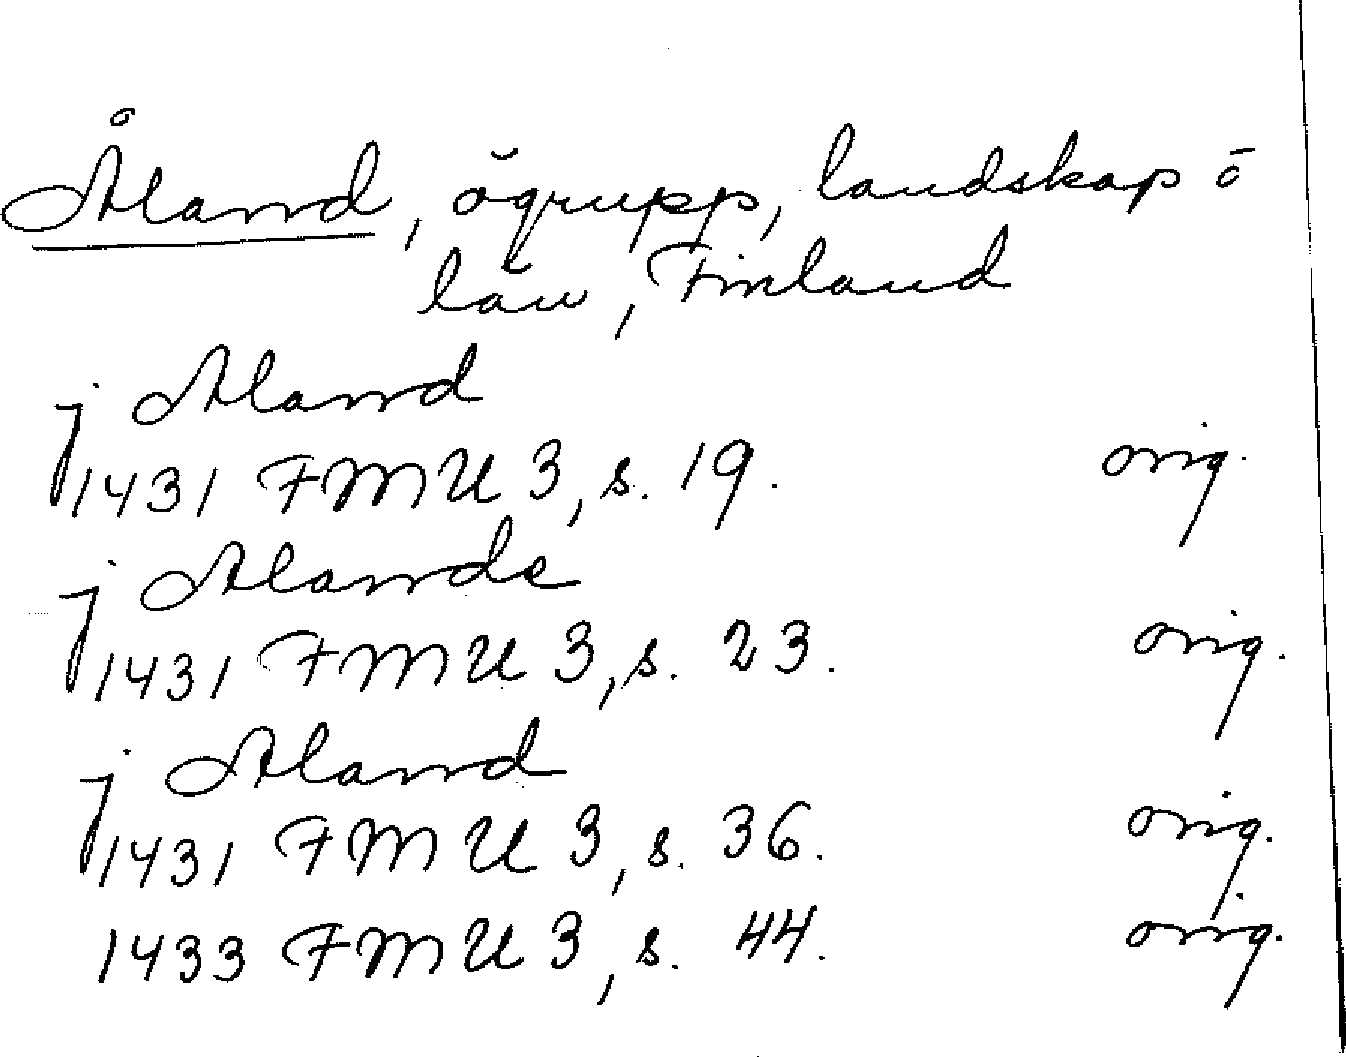 Åland, ögrupp, landskap o
län, Finland
j Aland
1431 FMU 3, s. 19. orig.
j Alande
1431 FMU 3, s. 23. orig.
j Aland
1431 FMU 3, s. 36. orig.
1433 FMU 3, s. 44. orig.